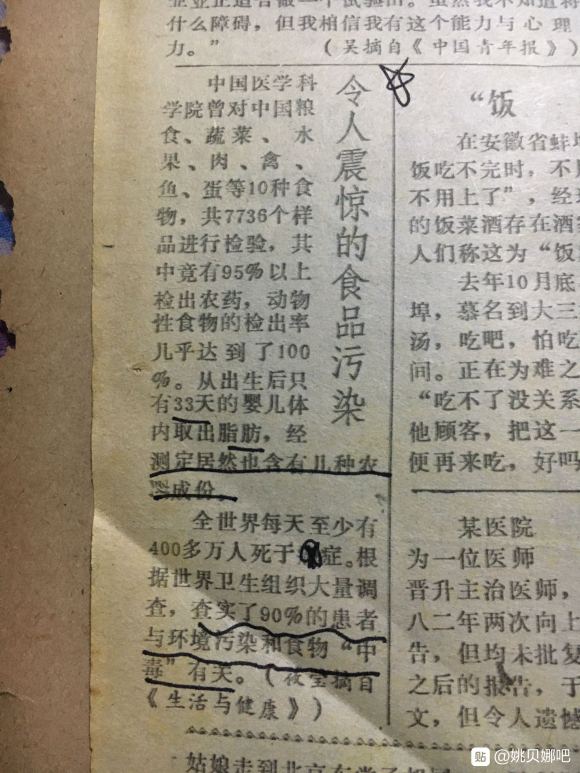 正适合做一个试验品。虽然我不知道将
什么障碍，但我相信我有这个能力与心理
力。”（吴摘自《中国青年报》）
令人震惊的食品污染
中国医学科
学院曾对中国粮
食、蔬菜、水
果、肉、禽、
鱼、蛋等10种食
物，共7736个样
品进行检验，其
中竟有95%以上
检出农药，动物
性食物的检出率
几乎达到了100
%。从出生后只
有33天的婴儿体
内取出脂肪，经
测定居然也含有几种农
成份。
全世界每天至少有
400多万人死于症。根
据世界卫生组织大量调
查，查实了90%的患者
与环境污染和食物“中
毒”有关。（摘自
《生活与健康》）
“饭
在安徽省蚌
饭吃不完时，不
不用上了”，经
的饭菜酒存在酒
人们称这为“饭
去年10月底
埠，慕名到大三
汤，吃吧，怕吃
间。正在为难之
“吃不了没关系
他顾客，把这一
便再来吃，好吗
某医院
为一位医师
晋升主治医师，
八二年两次向上
告，但均未批复
之后的报告，于
文，但令人遗憾
姑娘走到北京
贴 @姚贝娜吧